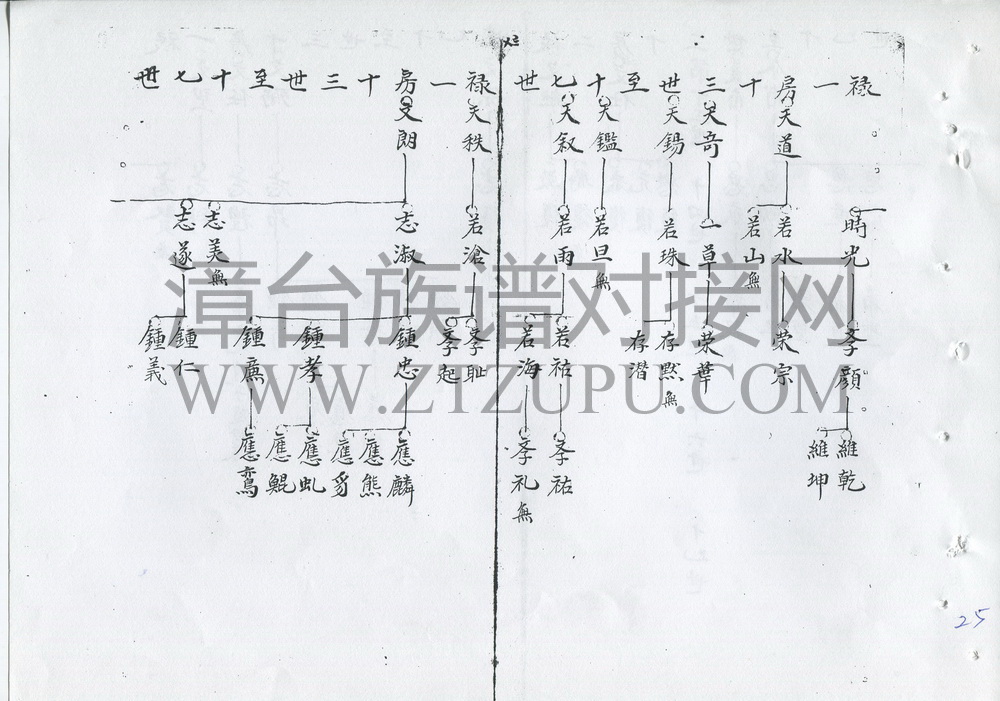 禄一房十三世至十七世
天道
天奇
天錫
天鑑
天叙
時光
若水
若山 無
一草
若珠
若旦 無
若雨
孝顔
荣宗
荣華
存默 無
存潜
若祐
若海
維乾
維坤
孝祐
孝礼 無
禄一房十三世至十七世
天秩
文朗
若滄
志淑
志美 無
志遂
孝耻
孝起
鍾忠
鍾孝
鍾廌
鍾仁
鍾義
應麟
應熊
應豸
應虬
應鯤
應鸞
漳台族谱对接网
WWW.ZTZUPU.COM
25